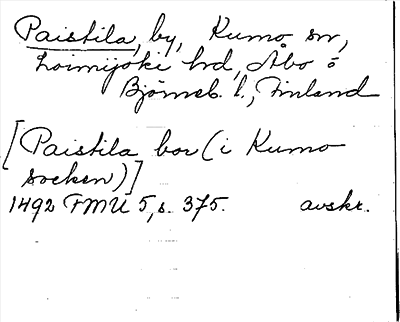 Paistila, by, Kumo sn,
Loimijoki hd, Åbo o
Björneb. l., Finland
[Paistila boo (i Kumo
socken)]
1492 FMU 5, s. 375. avskr.